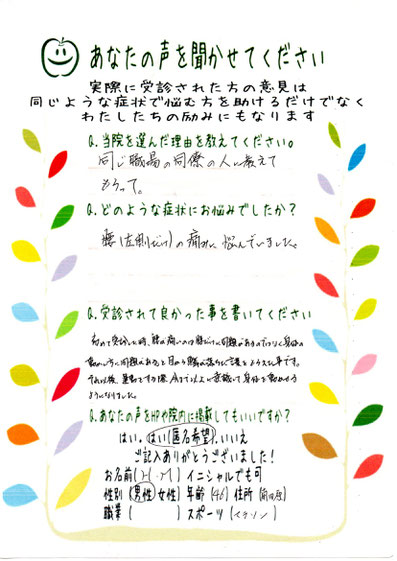 あなたの声を聞かせてください
実際に受診された方の意見は
同じような症状で悩む方を助けるだけでなく
わたしたちの励みにもなります
Q.当院を選んだ理由を教えてください。
同じ職場の同僚の人に教えて
もらって。
Q.どのような症状にお悩みでしたか?
腰(左側だけ)の痛みに悩んでいました。
Q.受診されて良かった事を書いてください
初めて受診した時、腰が痛いのは腰だけに問題があるのでなく身体の
動かし方に問題があると
それ以後、運動をする際、今まで以上に意識して身体を動かすよう
ようになりました。
Q.あなたの声をHPや院内に掲載してもいいですか?
はい。はい(匿名希望)。いいえ
ご記入ありがとうございました!
お名前(H.M)イニシャルでも可
性別(男性)女性)年齢(46)住所()
職業( )スポーツ(マラソン)